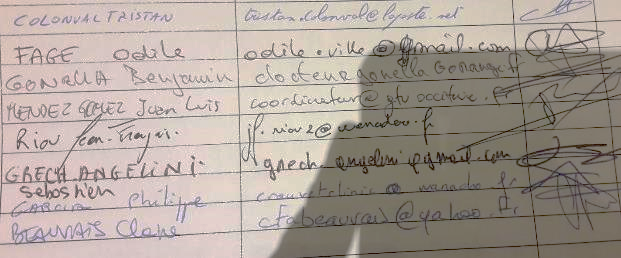 COLONVAL TRISTAN tristan.colonval@laposte.net
FAGE Odile odile.ville@gmail.com
GONELLA Benjamin docteurgonella@orange.fr
MENDEZ GOMEZ Juan Luis coordinateur@gtv occitanie.fr
Riou Jean-François. jf.riou2@wanadoo.fr
GRECH ANGELINI. grech.angelini@gmail.com
Sébastien
GARCIA Philippe @ wanadoo.fr
BEAUVAIS Claire cfabeauvais@yahoo.fr